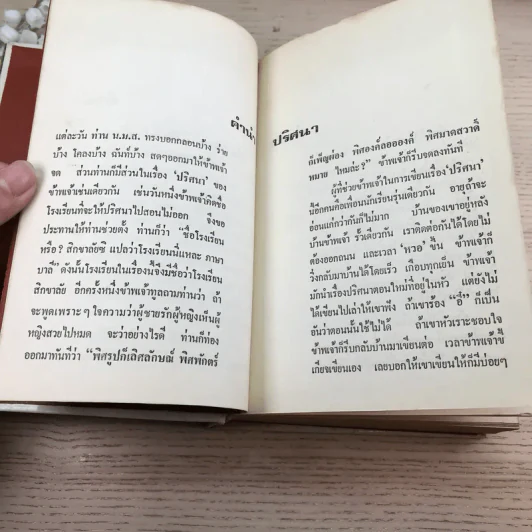 คำนำ
แต่ละวัน ท่าน น.ม.ส. ทรงบอกกลอนบ้าง ร่าย
บ้าง โคลงบ้าง ฉันท์บ้าง สดๆออกมาให้ข้าพเจ้า
จด ส่วนท่านก็มีส่วนในเรื่อง ‘ปริศนา’ ของ
ข้าพเจ้าเช่นเดียวกัน เช่นวันหนึ่งข้าพเจ้าคิดชื่อ
โรงเรียนที่จะให้ปริศนาไปสอนไม่ออก จึงขอ
ประทานให้ท่านช่วยตั้ง ท่านก็ว่า “ชื่อโรงเรียน
หรือ? สิกขาลัยซิ แปลว่าโรงเรียนนี่แหละ ภาษา
บาลี” ดังนั้นโรงเรียนในเรื่องนี้จึงมีชื่อว่าโรงเรียน
สิกขาลัย อีกครั้งหนึ่งข้าพเจ้าทูลถามท่านว่า ถ้า
จะพูดเพราะๆ ใจความว่าผู้ชายรักผู้หญิงเห็นผู้
หญิงสวยไปหมด จะว่าอย่างไรดี ท่านก็ท่อง
ออกมาทันทีว่า “พิศรูปก็เลิศลักษณ์ พิศพักตร์
ปริศนา
ก็เพ็ญผ่อง พิศองค์ลอออองค์ พิศมาดสวาดิ์
หมาย ไหมล่ะ?” ข้าพเจ้าก็รีบจดลงทันที
ผู้ที่ช่วยข้าพเจ้าในการเขียนเรื่อง ‘ปริศนา’
นี้อีกคนคือเพื่อนนักเรียนรุ่นเดียวกัน อายุถ้าจะ
อ่อนแก่กว่ากันก็ไม่มาก บ้านของเขาอยู่หลัง
บ้านข้าพเจ้า รั้วเดียวกัน เราติดต่อกันได้โดยไม่
ต้องออกถนน และเวลา ‘หวอ’ ขึ้น ข้าพเจ้าก็
วิ่งกลับมาบ้านได้โดยเร็ว เกือบทุกเย็น ข้าพเจ้า
มักนำเรื่องปริศนาตอนใหม่ที่อยู่ในหัว แต่ยังไม่
ได้เขียนไปเล่าให้เขาฟัง ถ้าเขาร้อง “อี๋” ก็เป็น
อันว่าตอนนั้นใช้ไม่ได้ ถ้าเขาหัวเราะชอบใจ
ข้าพเจ้าก็รีบกลับบ้านมาเขียนต่อ เวลาข้าพเจ้าขี้
เกียจเขียนเอง เลยบอกให้เขาเขียนให้ก็มีบ่อยๆ